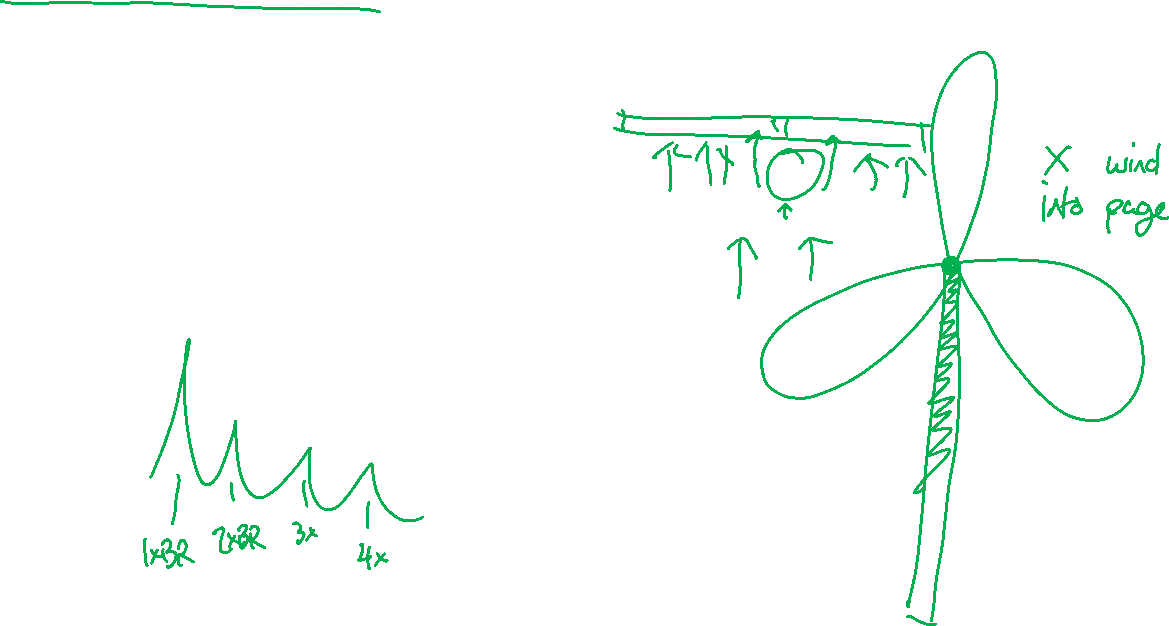 X wind
into page
1xBR
2xBR
3x
4x